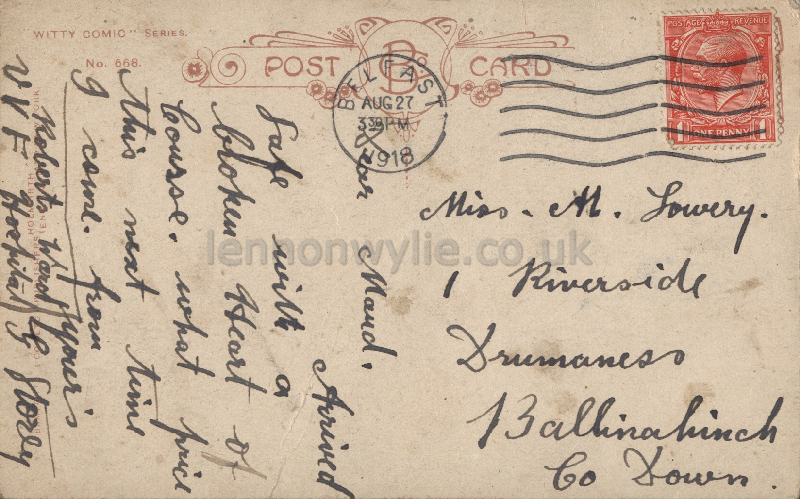 "WITTY COMIC" SERIES.
No. 668.
POST CARD
BELFAST
AUG 27
3 30 PM
1918
POSTAGE REVENUE
ONE PENNY
Dear Maud.
Arrived
Safe with a
broken Heart of
Course. what price
this next time
I come. from
your's
G Storey
Roberts Ward
U V F Hospital
Miss. M. Lowery.
1 Riverside
Drumaness
Ballinahinch
Co Down.
lennonwylie.co.uk